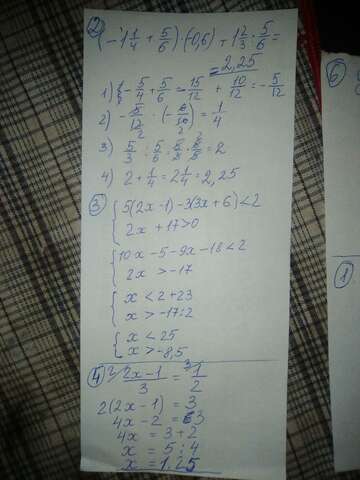 ② (-1 1/4 + 5/6) · (-0,6) + 1 2/3 · 5/6 =
= 2,25
1) -5/4 + 5/6 = -15/12 + 10/12 = -5/12
2) -5/12 · (-6/10) = 1/4
3) 5/3 : 5/6 = 5/3 · 6/5 = 2
4) 2 + 1/4 = 2 1/4 = 2,25
③ { 5(2x-1)-3(3x+6)<2
2x+17>0
{ 10x-5-9x-18<2
2x > -17
{ x < 2+23
x > -17:2
{ x < 25
x > -8,5
④ 2 2x-1/3 = 3 1/2
2(2x-1) = 3
4x-2 = 3
4x = 3+2
x = 5:4
x = 1.25
⑥
①